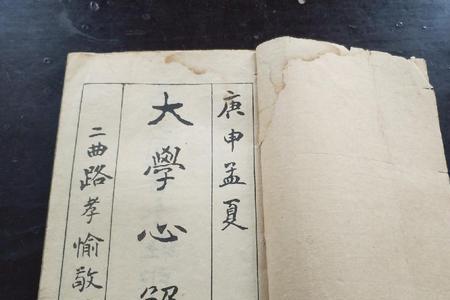 庚申孟夏
大學心解
二曲路孝愉敬